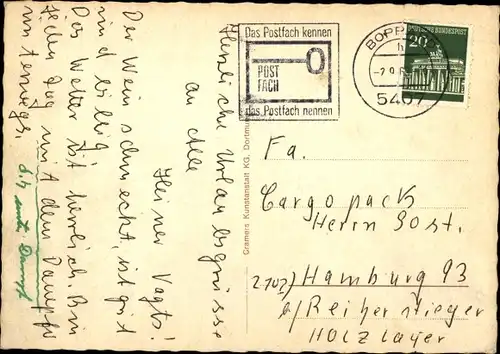 Herzliche Urlaubsgrüsse
an Alle
Heiner Vagts!
Der Wein schmeckt, ist gut
und billig.
Das Wetter ist herrlich. Bin
jeden Tag mit dem Dampfer
unterwegs.
d.h. unter Dampf
Das Postfach kennen
POST
FACH
das Postfach nennen
BOPP
h
-2.9.6
5407
DEUTSCHE BUNDESPOST
20
Cramers Kunstanstalt KG, Dortmund
Fa.
Cargopack
Herrn Jost.
2102) Hamburg 93
b/ Reiherstieger
HOLZlager